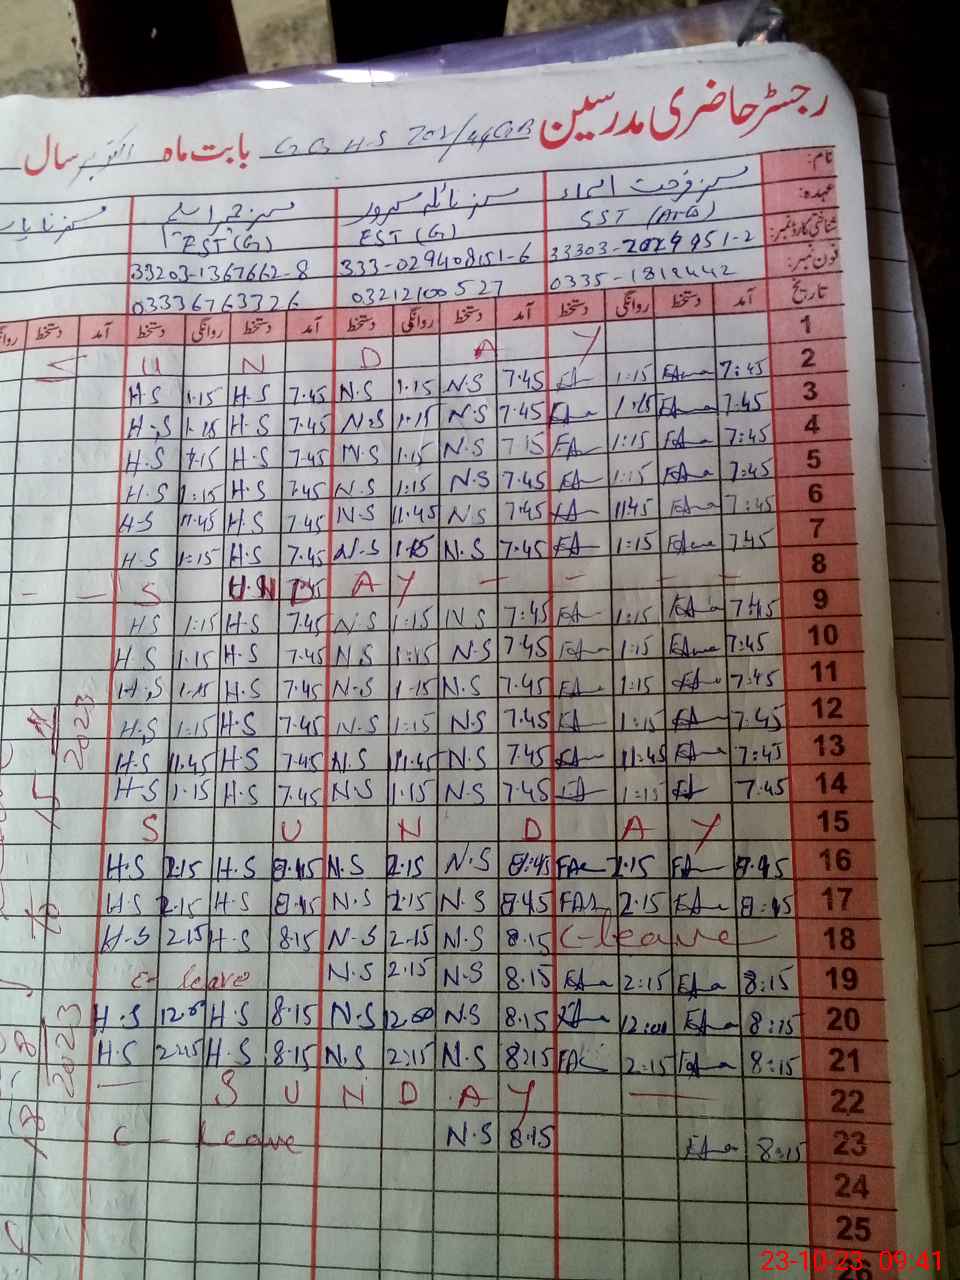 رجسٹر حاضری مدرسین GGHS 701/44GB بابت ماہ اکتوبر سال
نام:
عہدہ: SST EST (G) EST (G)
شناختی کارڈ نمبر: 333-029408151-6 33203-1367662-8
فون نمبر: 0335-1818442 03212100527 03336763726
تاریخ آمد دستخط روانگی دستخط آمد دستخط روانگی دستخط آمد دستخط روانگی دستخط آمد
1 S U N D A Y
2 7:45 1:15 7.45 N.S 1.15 N.S 7.45 H.S 1.15 H.S
3 7.45 7.45 N.S 1.15 N.S 7.45 H.S 1.15 H.S
4 7:45 1:15 N.S 1.15 N.S 7.45 H.S 1.15 H.S
5 7:45 1:15 7.45 N.S 1:15 N.S 7.45 H.S 1:15 H.S
6 7:45 11:45 7.45 N.S 11.45 N.S 7.45 H.S 11.45 H.S
7 7.45 1:15 7.45 N.S 1.15 N.S 7.45 H.S 1:15 H.S
8 S U N D A Y
9 7:45 1:15 7:45 N.S 1:15 N.S 7.45 H.S 1:15 H.S
10 7:45 1:15 7.45 N.S 1:15 N.S 7.45 H.S 1.15 H.S
11 7:45 1:15 7.45 N.S 1.15 N.S 7.45 H.S 1.15 H.S
12 7.45 1:15 7.45 N.S 1:15 N.S 7.45 H.S 1:15 H.S
13 7:45 11:45 7.45 N.S 11.45 N.S 7.45 H.S 11.45 H.S
14 7.45 1:15 7.45 N.S 1.15 N.S 7.45 H.S 1.15 H.S
15 S U N D A Y
16 8.45 2.15 8:45 N.S 2.15 N.S 8.45 H.S 2.15 H.S
17 8:45 2:15 8.45 N.S 2.15 N.S 8.45 H.S 2.15 H.S
18 C-leave 8.15 N.S 2.15 N.S 8.15 H.S 2.15 H.S
19 8:15 2:15 8.15 N.S 2.15 N.S C-leave
20 8:15 12:00 8.15 N.S 12.00 N.S 8.15 H.S H.S
21 8:15 2:15 8:15 N.S 2:15 N.S 8.15 H.S H.S
22 S U N D A Y
23 8:15 8.15 N.S C-leave
24
25
2023
2023
23-10-23 09:41